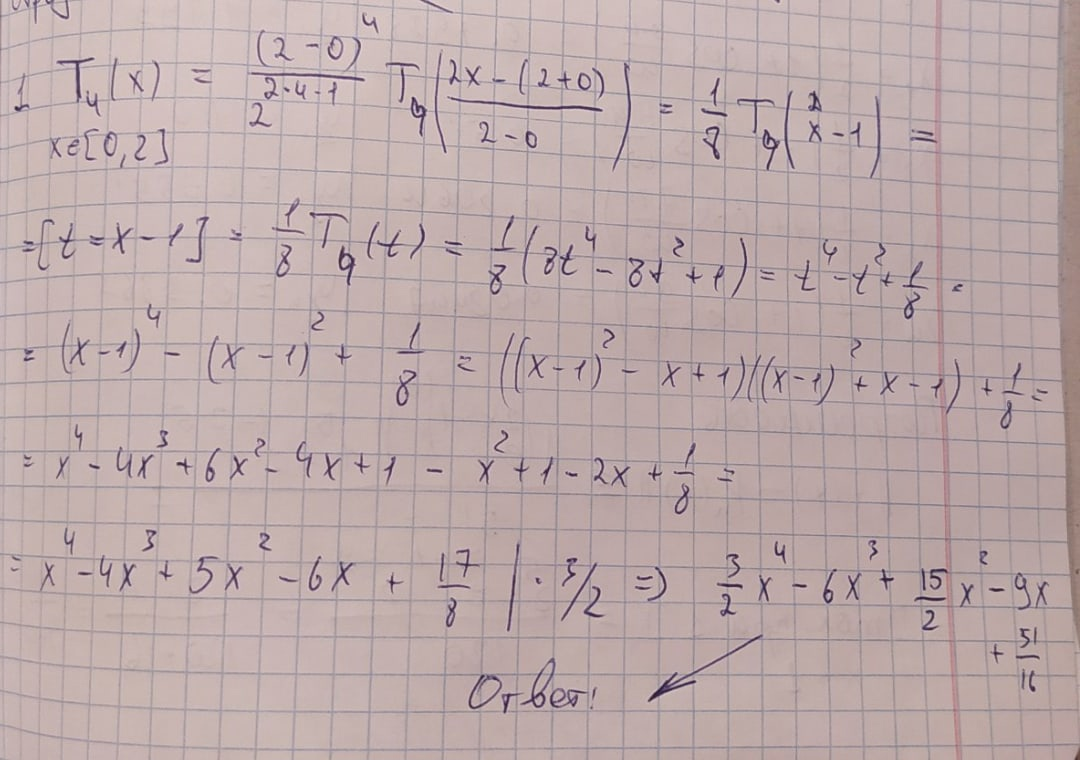 1 T₄(x) = (2-0)⁴/2^(2·4-1) T₄((2x-(2+0))/(2-0)) = 1/8 T₄(x-1) =
x∈[0,2]
=[t=x-1] = 1/8 T₄(t) = 1/8(8t⁴-8t²+1) = t⁴-t²+1/8 =
= (x-1)⁴ - (x-1)² + 1/8 = ((x-1)² - x+1)((x-1)² + x-1) + 1/8 =
= x⁴ - 4x³ + 6x² - 4x + 1 - x² + 1 - 2x + 1/8 =
= x⁴ - 4x³ + 5x² - 6x + 17/8 | · 3/2 => 3/2 x⁴ - 6x³ + 15/2 x² - 9x
+ 51/16
Ответ!